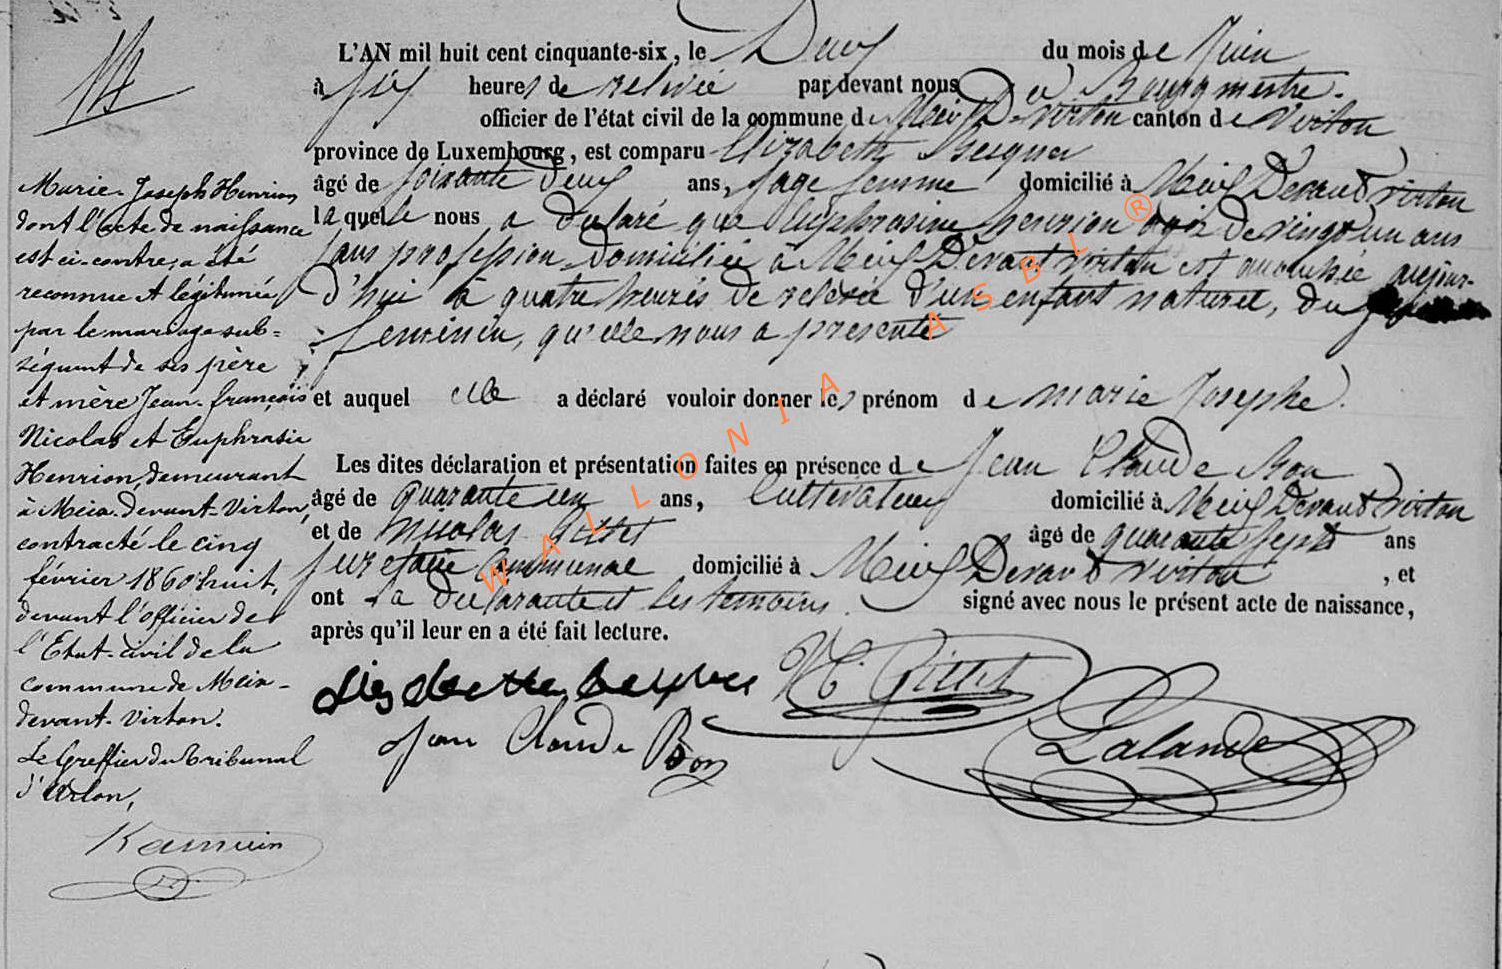 14
L'AN mil huit cent cinquante-six, le Deux du mois de Juin
à six heures de relevée par devant nous Bourgmestre.
officier de l'état civil de la commune de Meix D-virton canton de Virton
province de Luxembourg, est comparu Elizabeth
âgé de soixante deux ans, sage femme domicilié à Meix Devant virton
laquelle nous a declaré que Euphrosine henrion agée de vingt un ans
sans profession domiciliée à Meix Devant virton est accouchée aujour-
d'hui à quatre heures de relevée d'un enfant naturel, du
feminin, qu'elle nous a presenté
et auquel elle a déclaré vouloir donner les prénom de marie Josephe.
Les dites déclaration et présentation faites en présence de Jean Claude Bon
âgé de quarante un ans, Cultivateur domicilié à Meix Devant virton
et de Nicolas Gillet âgé de quarante sept ans
secretaire Communal domicilié à Meix Devant virton, et
ont la declarante et les temoins. signé avec nous le présent acte de naissance,
après qu'il leur en a été fait lecture.
N. Gillet
Jean Claude Bon
Lalande
Marie-Joseph Henrion
dont l'acte de naissance
est ci-contre, a été
reconnue et légitimée
par le mariage sub-
séquent de ses père
et mère Jean-françois
Nicolas et Euphrasie
Henrion, demeurant
à Meix-devant-Virton,
contracté le cinq
février 1860 huit,
devant l'officier de
l'Etat-civil de la
commune de Meix-
devant-Virton.
Le Greffier du Tribunal
d'Arlon,
WALLONIA ASBL ®